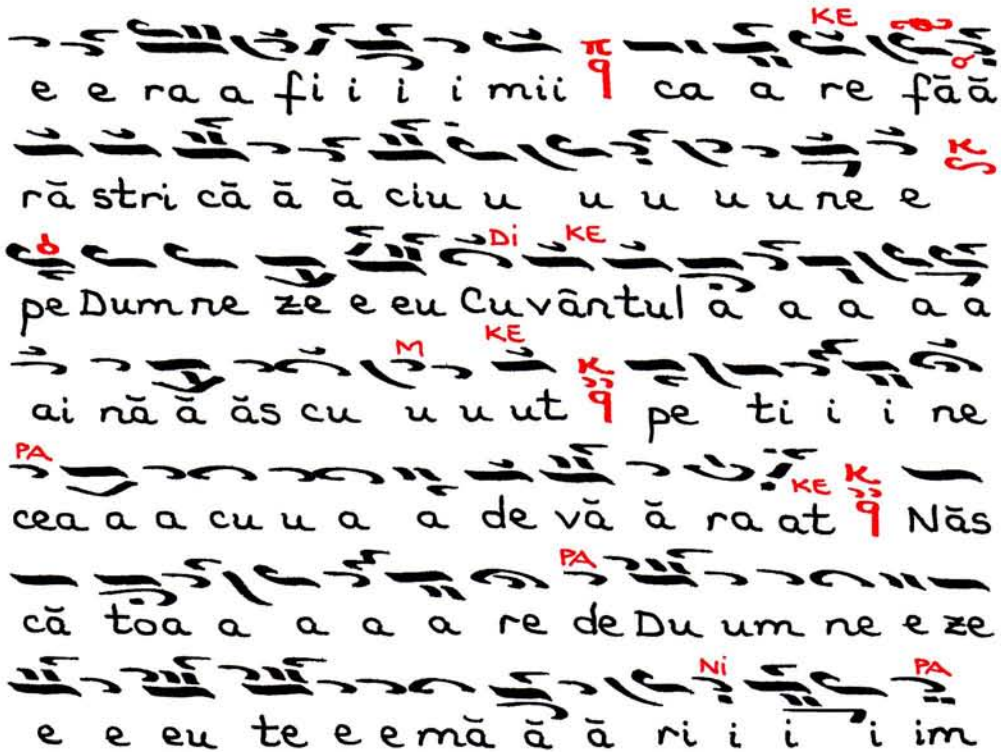 KE
e e ra a fi i i i mii π q ca a re fă ă
ră stri că ă ă ciu u u u u u ne e
Di KE
pe Dum ne ze e eu Cu vân tul a a a a a
M KE
ai nă ă ăs cu u u ut q pe ti i i ne
PA
cea a a cu u a a de vă ă ra at KE q Năs
PA
că toa a a a a re de Du um ne e ze
Ni PA
e e eu te e e mă ă ă ri i i i im